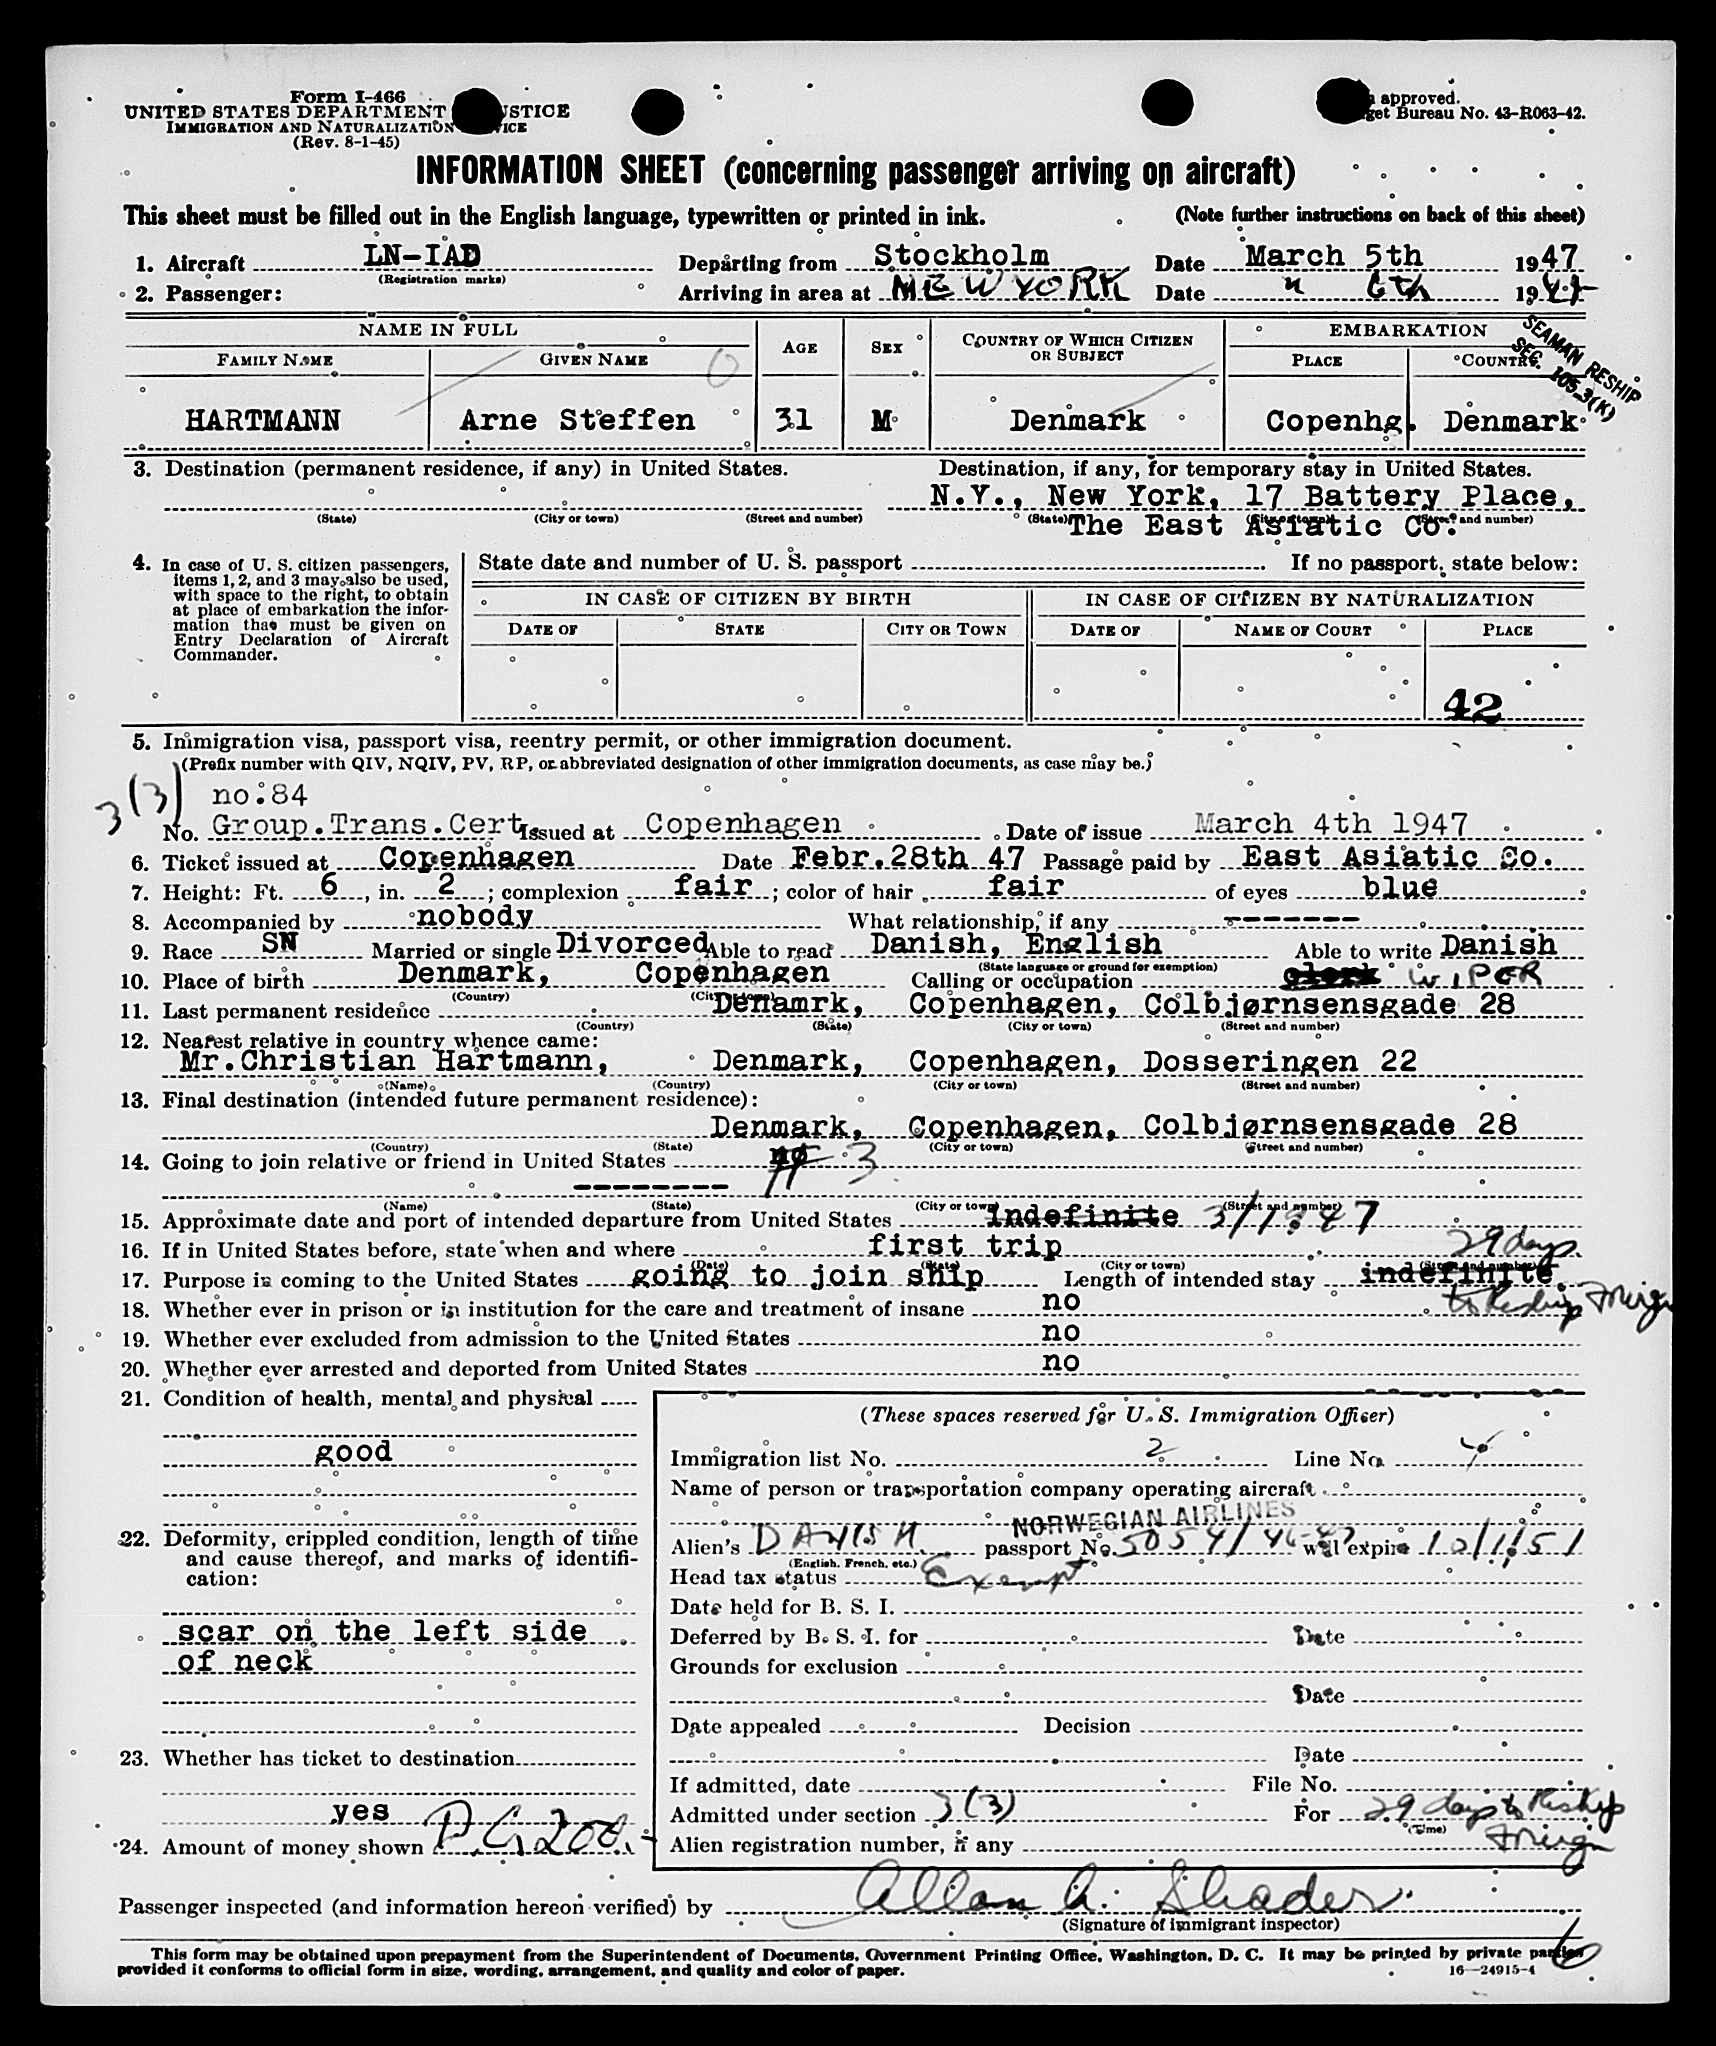 Form I-466
UNITED STATES DEPARTMENT JUSTICE
IMMIGRATION AND NATURALIZATION SERVICE
(Rev. 8-1-45)
approved.
Budget Bureau No. 43-R063-42.
INFORMATION SHEET (concerning passenger arriving on aircraft)
This sheet must be filled out in the English language, typewritten or printed in ink. (Note further instructions on back of this sheet)
1. Aircraft LN-IAD Departing from Stockholm Date March 5th 1947
(Registration marks)
2. Passenger: Arriving in area at NEW YORK Date " 6th 1947
NAME IN FULL AGE SEX COUNTRY OF WHICH CITIZEN OR SUBJECT EMBARKATION
FAMILY NAME GIVEN NAME PLACE COUNTRY
SEAMAN RESHIP
SEC. 105.3(K)
HARTMANN Arne Steffen 31 M Denmark Copenhg. Denmark
3. Destination (permanent residence, if any) in United States. Destination, if any, for temporary stay in United States.
N.Y., New York, 17 Battery Place,
(State) (City or town) (Street and number) (State) (City or town) (Street and number)
The East Asiatic Co.
4. In case of U. S. citizen passengers, items 1, 2, and 3 may also be used, with space to the right, to obtain at place of embarkation the information that must be given on Entry Declaration of Aircraft Commander.
State date and number of U. S. passport If no passport, state below:
IN CASE OF CITIZEN BY BIRTH IN CASE OF CITIZEN BY NATURALIZATION
DATE OF STATE CITY OR TOWN DATE OF NAME OF COURT PLACE
42
5. Immigration visa, passport visa, reentry permit, or other immigration document.
(Prefix number with QIV, NQIV, PV, RP, or abbreviated designation of other immigration documents, as case may be.)
3(3) no.84
No. Group.Trans.Cert. Issued at Copenhagen Date of issue March 4th 1947
6. Ticket issued at Copenhagen Date Febr.28th 47 Passage paid by East Asiatic Co.
7. Height: Ft. 6, in. 2; complexion fair; color of hair fair of eyes blue
8. Accompanied by nobody What relationship, if any -------
9. Race SN Married or single Divorced Able to read Danish, English Able to write Danish
(State language or ground for exemption)
10. Place of birth Denmark, Copenhagen Calling or occupation clerk WIPER
(Country) (City or town)
11. Last permanent residence Denamrk, Copenhagen, Colbjørnsensgade 28
(Country) (State) (City or town) (Street and number)
12. Nearest relative in country whence came:
Mr.Christian Hartmann, Denmark, Copenhagen, Dosseringen 22
(Name) (Country) (City or town) (Street and number)
13. Final destination (intended future permanent residence):
Denmark, Copenhagen, Colbjørnsensgade 28
(Country) (State) (City or town) (Street and number)
14. Going to join relative or friend in United States no # 3
--------
(Name) (State) (City or town) (Street and number)
15. Approximate date and port of intended departure from United States Indefinite
16. If in United States before, state when and where first trip
(Date) (State) (City or town) (Street and number)
29 days
17. Purpose in coming to the United States going to join ship Length of intended stay indefinite.
to Reship foreign
18. Whether ever in prison or in institution for the care and treatment of insane no
19. Whether ever excluded from admission to the United States no
20. Whether ever arrested and deported from United States no
21. Condition of health, mental and physical
good
22. Deformity, crippled condition, length of time and cause thereof, and marks of identification:
scar on the left side
of neck
23. Whether has ticket to destination
yes
24. Amount of money shown 200.-
(These spaces reserved for U. S. Immigration Officer)
Immigration list No. 2 Line No. 4
Name of person or transportation company operating aircraft
NORWEGIAN AIRLINES
Alien's DANISH passport No. will expire 10/1/51
(English, French, etc.)
Head tax status Exempt
Date held for B. S. I.
Deferred by B. S. I. for Date
Grounds for exclusion
Date
Date appealed Decision
Date
If admitted, date File No.
Admitted under section 3(3) For 29 days to Reship
(Time)
foreign
Alien registration number, if any
Passenger inspected (and information hereon verified) by Allan A. Shader
(Signature of immigrant inspector)
This form may be obtained upon prepayment from the Superintendent of Documents, Government Printing Office, Washington, D. C. It may be printed by private parties
provided it conforms to official form in size, wording, arrangement, and quality and color of paper.
16—24915-4